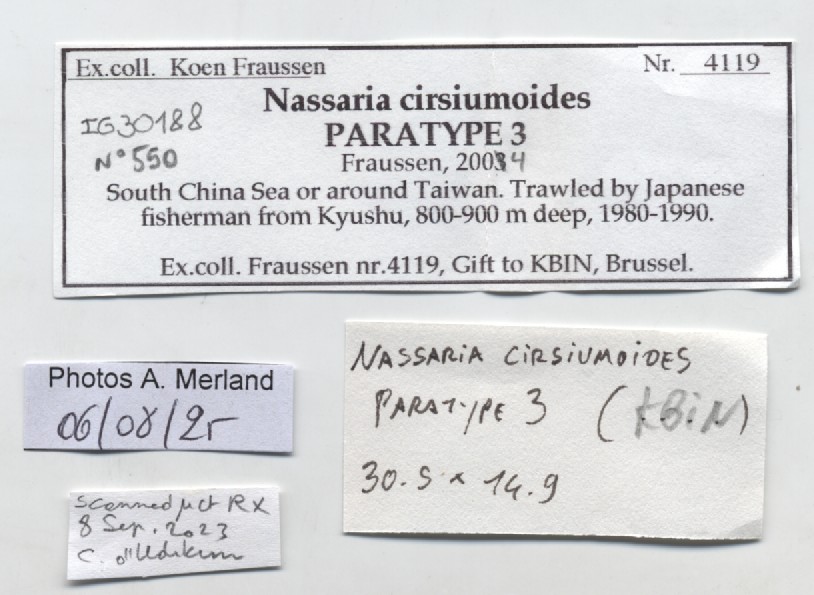 Ex.coll. Koen Fraussen Nr. 4119
Nassaria cirsiumoides
IG30188
PARATYPE 3
N° 550
Fraussen, 2004
South China Sea or around Taiwan. Trawled by Japanese
fisherman from Kyushu, 800-900 m deep, 1980-1990.
Ex.coll. Fraussen nr.4119, Gift to KBIN, Brussel.
Photos A. Merland
06/08/25
NASSARIA CIRSIUMOIDES
PARATYPE 3 (KBIN)
30.5 x 14.9
Scanned µct RX
8 Sep. 2023
C.